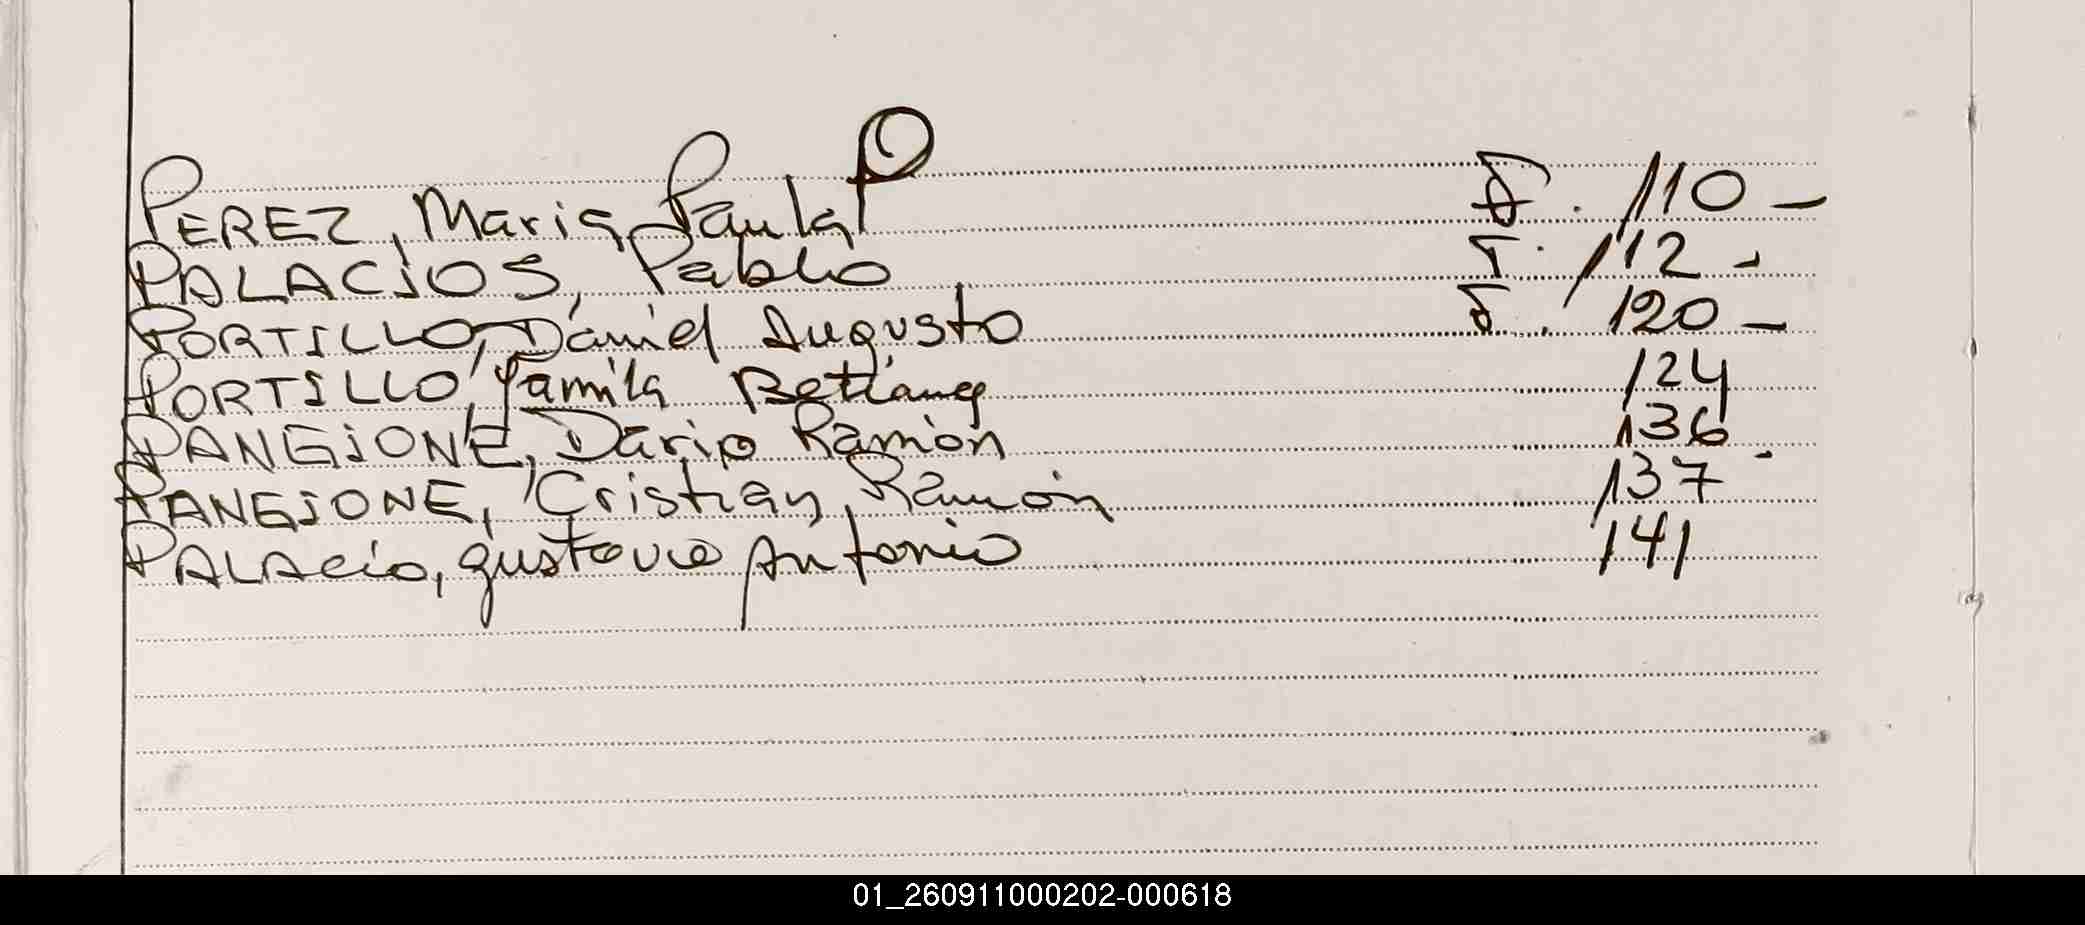 P
PEREZ, Maria Paula F. 110 -
PALACiOS, Pablo F. 112 -
PORTILLO, Daniel Augusto F. 120 -
PORTILLO, Yamila Betiana 124
PANGiONE, Dario Ramón 136
PANGIONE, Cristian Ramón 137
PALAcio, gustavo Antonio 141
01_260911000202-000618